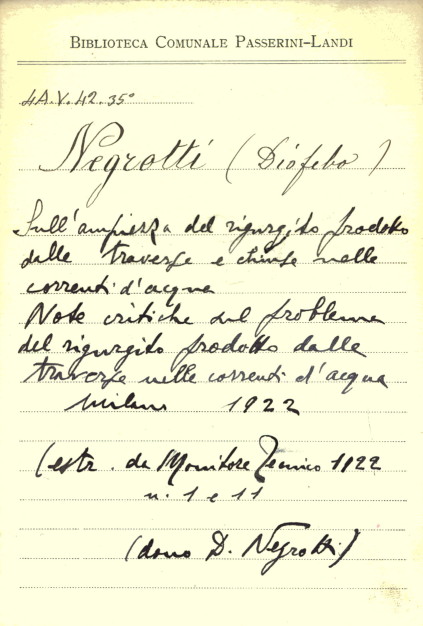 BIBLIOTECA COMUNALE PASSERINI-LANDI
4A.V.42.35°
Negrotti (Diofebo)
Sull'ampiezza del rigurgito prodotto
dalle traverse e chiuse nelle
correnti d'acqua
Note critiche sul problema
del rigurgito prodotto dalle
traverse nelle correnti d'acqua
Milano 1922
(estr. da Monitore Tecnico 1922
n. 1 e 11
(dono D. Negrotti)